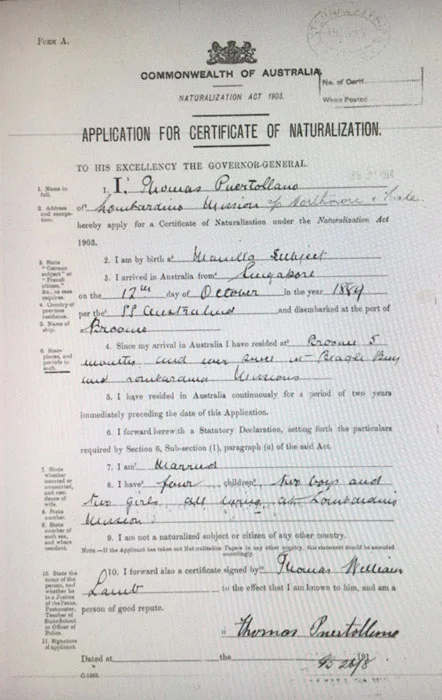 FORM A.
COMMONWEALTH OF AUSTRALIA.
No. of Certf.
When Posted
NATURALIZATION ACT 1903.
APPLICATION FOR CERTIFICATE OF NATURALIZATION.
TO HIS EXCELLENCY THE GOVERNOR-GENERAL.
1. Name in full.
1. I, Thomas Puertollano
2. Address and occupation.
of Lombardina Mission
hereby apply for a Certificate of Naturalization under the Naturalization Act
1903.
3. State "German subject" or "French citizen," &c., as case requires.
2. I am by birth a Manilla Subject
3. I arrived in Australia from Singapore
4. Country of previous residence.
on the 12th day of October in the year 1889
5. Name of ship.
per the SS Australind and disembarked at the port of
Broome
6. State places, and periods in each.
4. Since my arrival in Australia I have resided at Broome 5
months and ever since at Beagle Bay
and Lombardina Missions
5. I have resided in Australia continuously for a period of two years
immediately preceding the date of this Application.
6. I forward herewith a Statutory Declaration, setting forth the particulars
required by Section 6, Sub-section (1), paragraph (a) of the said Act.
7. State whether married or unmarried, and residence of wife.
7. I am Married
8. State number.
8. I have four children, two boys and
two girls all living at Lombardina
9. State number of each sex, and where resident.
Mission
9. I am not a naturalized subject or citizen of any other country.
NOTE.—If the Applicant has taken out Naturalization Papers in any other country, this statement should be amended accordingly.
10. State the name of the person, and whether he is a Justice of the Peace, Postmaster, Teacher of State School or Officer of Police.
10. I forward also a certificate signed by Thomas William
Lamb to the effect that I am known to him, and am a
person of good repute.
11. Signature of applicant.
Thomas Puertollano
Dated at the 191
C.1969.